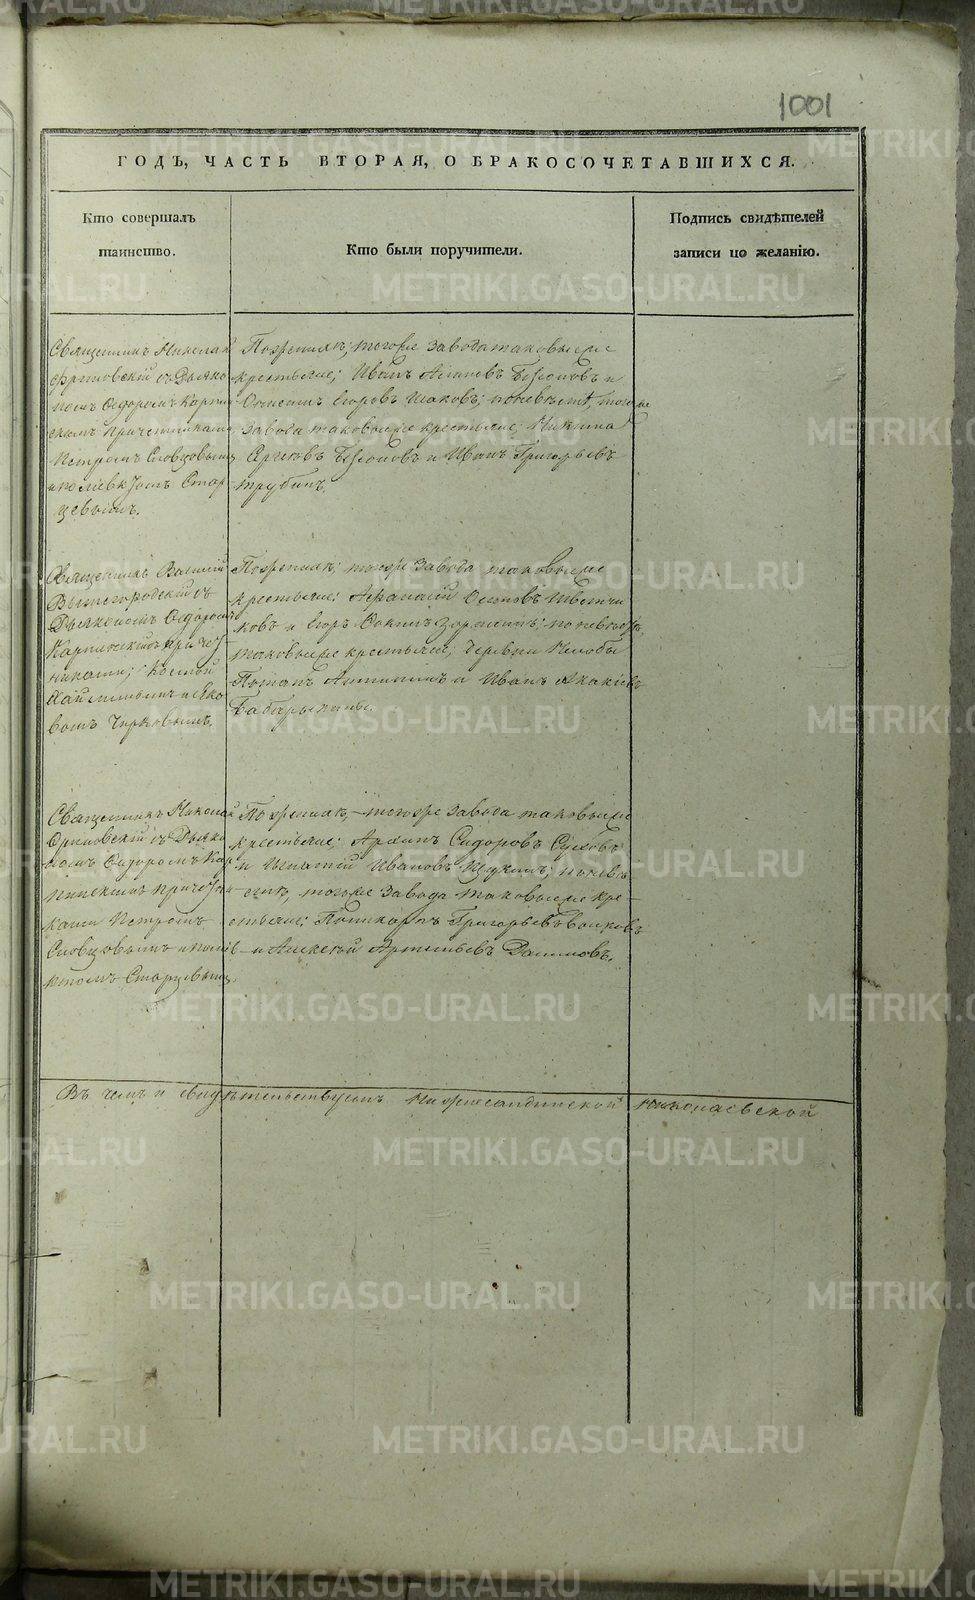 1001
ГОДЪ, ЧАСТЬ ВТОРАЯ, О БРАКОСОЧЕТАВШИХСЯ.
Кто совершалъ
таинство.
Кто были поручители.
Подпись свидѣтелей
записи по желанію.
Священникъ Николай
съ Дьяко
номъ Ѳедоромъ Карпин
скимъ причетниками
Петромъ Словцовымъ
и Стар
цевымъ.
По женихѣ; тогоже завода таковыеже
крестьяне; Иванъ и
Егоровъ по невѣстѣ, тогоже
завода таковыеже крестьяне; Никита
и Иванъ Григорьевъ
Трубинъ.
Священникъ Василій
Вышегородскій съ
Дьякономъ Ѳедоромъ
Карпинскимъ причет
никами;
и Яко
вомъ
По женихѣ; тогоже завода таковыеже
крестьяне; Афанасій Осиповъ
ковъ и Егоръ по невѣстѣ,
таковыеже крестьяне; деревни
Потапъ Антипинъ и Иванъ
Священникъ Николай
съ Дьяко
номъ Ѳедоромъ Кар
пинскимъ причетни
ками Петромъ
Словцовымъ и
Старцевымъ.
По женихѣ, тогоже завода таковыеже
крестьяне; Архипъ Сидоровъ
и Игнатій Ивановъ Щукинъ, по невѣ
стѣ, тогоже завода таковыеже кре-
стьяне; Поликарпъ Григорьевъ Волковъ
и Алексѣй Артемьевъ Даниловъ.
Въ чемъ и свидѣтельствуемъ Николаевской
METRIKI.GASO-URAL.RU